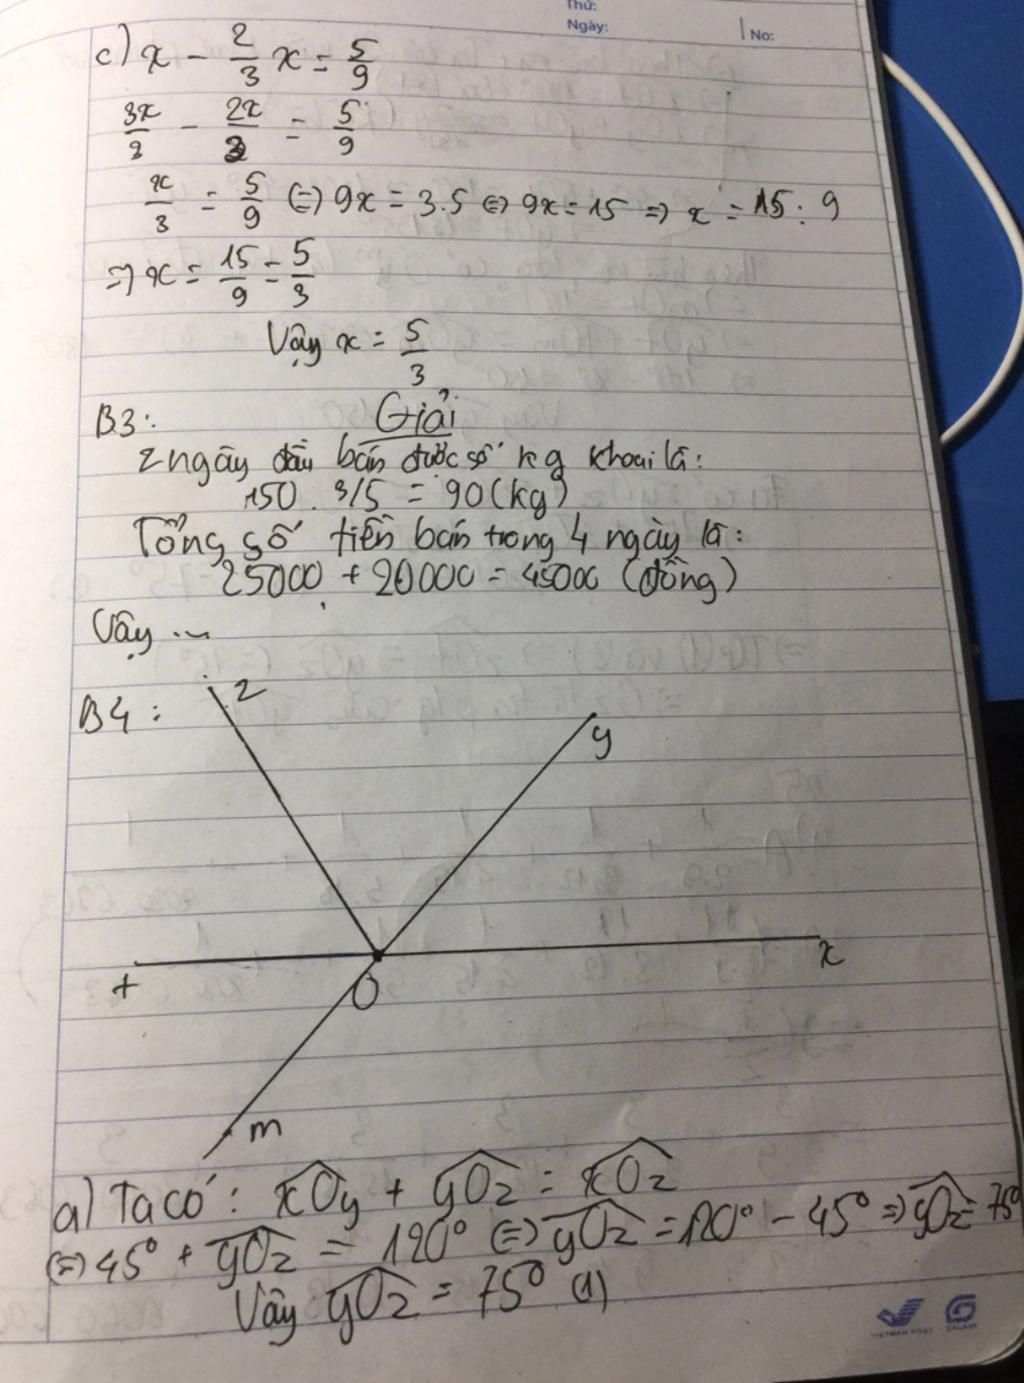 Thứ:
Ngày:
No:
c) x - 2/3 x = 5/9
3x/3 - 2x/3 = 5/9
x/3 = 5/9 (=) 9x = 3.5 (=) 9x = 15 => x = 15 : 9
=> x = 15/9 = 5/3
Vậy x = 5/3
B3: Giải
2 ngày đầu bán được số kg khoai là:
150 . 3/5 = 90 (kg)
Tổng số tiền bán trong 4 ngày là:
25000 + 20000 = 45000 (đồng)
Vậy ...
B4:
z
y
t
O
x
m
a) Ta có: xOy + yOz = xOz
(=) 45° + yOz = 120° (=) yOz = 120° - 45° => yOz = 75°
Vậy yOz = 75° (1)
VIETNAM POST